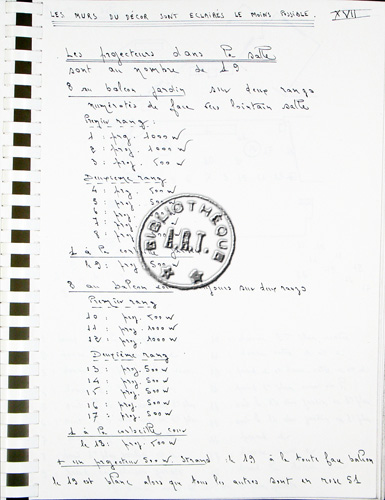 LES MURS DU DÉCOR SONT ECLAIRES LE MOINS POSSIBLE. XVII
Les projecteurs dans la salle
sont au nombre de 19
8 au balcon jardin sur deux rangs
numérotés de face vers lointain salle
Premier rang :
1 : proj. 1000 W
2 : proj. 1000 W
3 : proj. 500 W
Deuxième rang
4 : proj. 500 W
5 : proj. 500
6 :
8 : proj. 500 W
BIBLIOTHÈQUE
A.R.T.
1 à la
proj. 500
8 au balcon sur deux rangs
Premier rang
10 : proj. 500 W
11 : proj. 1000 W
12 : proj. 1000 W
Deuxième rang
13 : proj. 500 W
14 : proj. 500 W
15 : proj. 500 W
16 : proj. 500 W
17 : proj. 500 W
1 à la corbeille cour
le 18 : proj. 500 W
+ un projecteur 500 W. Strand : le 19 à la toute face balcon
le 19 est blanc alors que tous les autres sont en rose 51